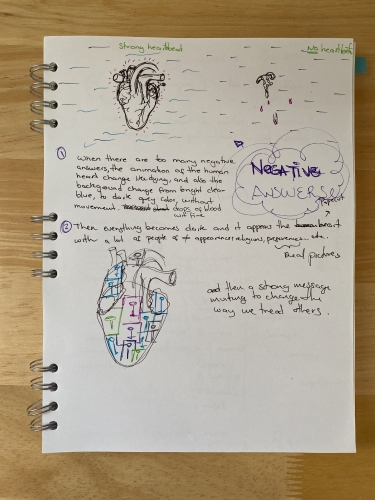 Strong heartbeat
No heartbeat
① When there are too many negative
answers, the animation of the human
heart change it's dying, and also the
background change from bright clear
blue, to dark grey color, without
movement drops of blood
NEGATIVE
ANSWERS
② Then everything becomes dark and it appears the heart
with a lot of people of ≠ appearences, religions, etc.
Real pictures
and then a strong message
inviting to change the
way we treat others.